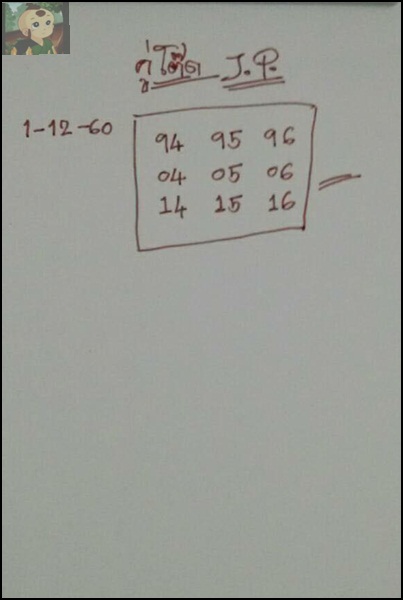 คู่โต๊ด J.P.
1-12-60
94 95 96
04 05 06
14 15 16